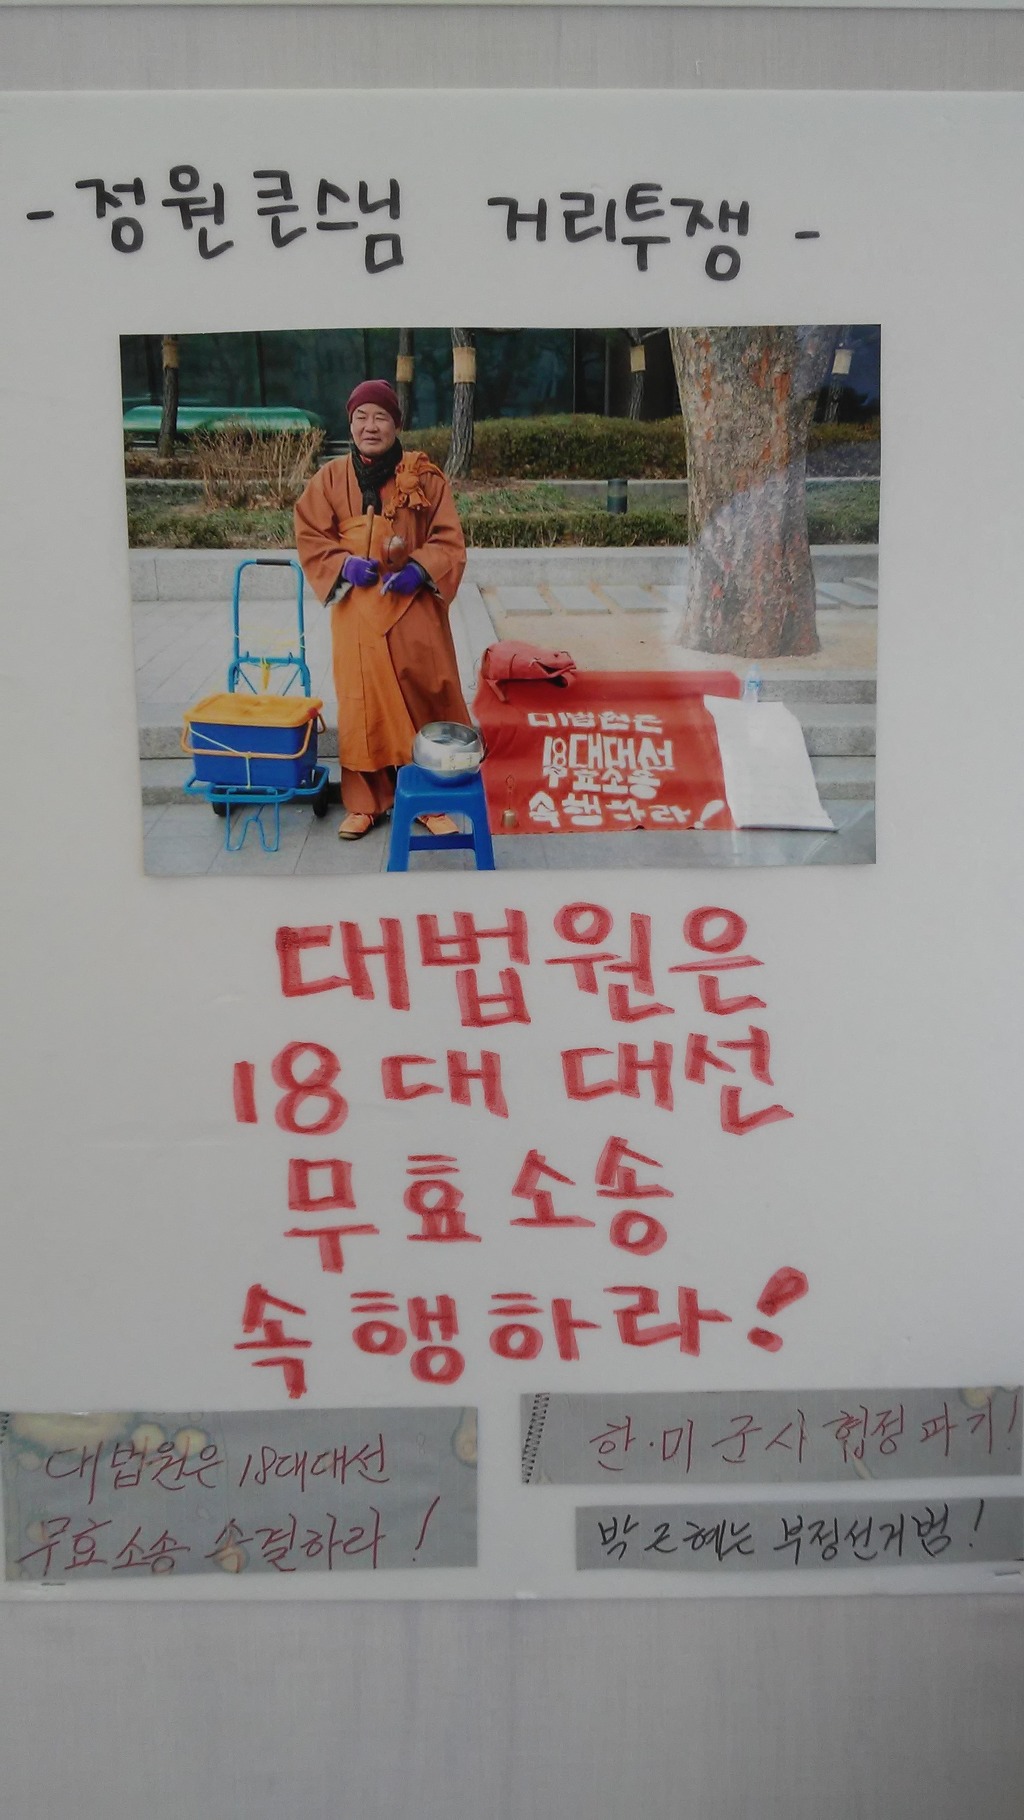 - 정원큰스님 거리투쟁 -
대법원은
18대대선
무효소송
속행하라!
대법원은
18대 대선
무효소송
속행하라!
대법원은 18대대선
무효소송 속결하라!
한·미 군사 협정 파기!
박근혜는 부정선거범!